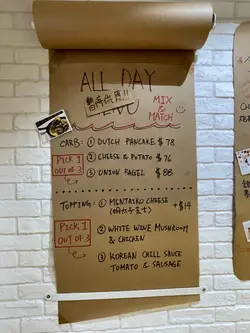 ALL DAY
MENU
暫停供應!!
MIX
&
MATCH
CARB: ① DUTCH PANCAKE $78
PICK 1
OUT OF 3
② CHEESE & POTATO $76
③ ONION BAGEL $88
TOPPING: ① MENTAIKO CHEESE +$14
(明太子芝士)
PICK 1
OUT OF 3
② WHITE WINE MUSHROOM
& CHICKEN
③ KOREAN CHILI SAUCE
TOMATO & SAUSAGE